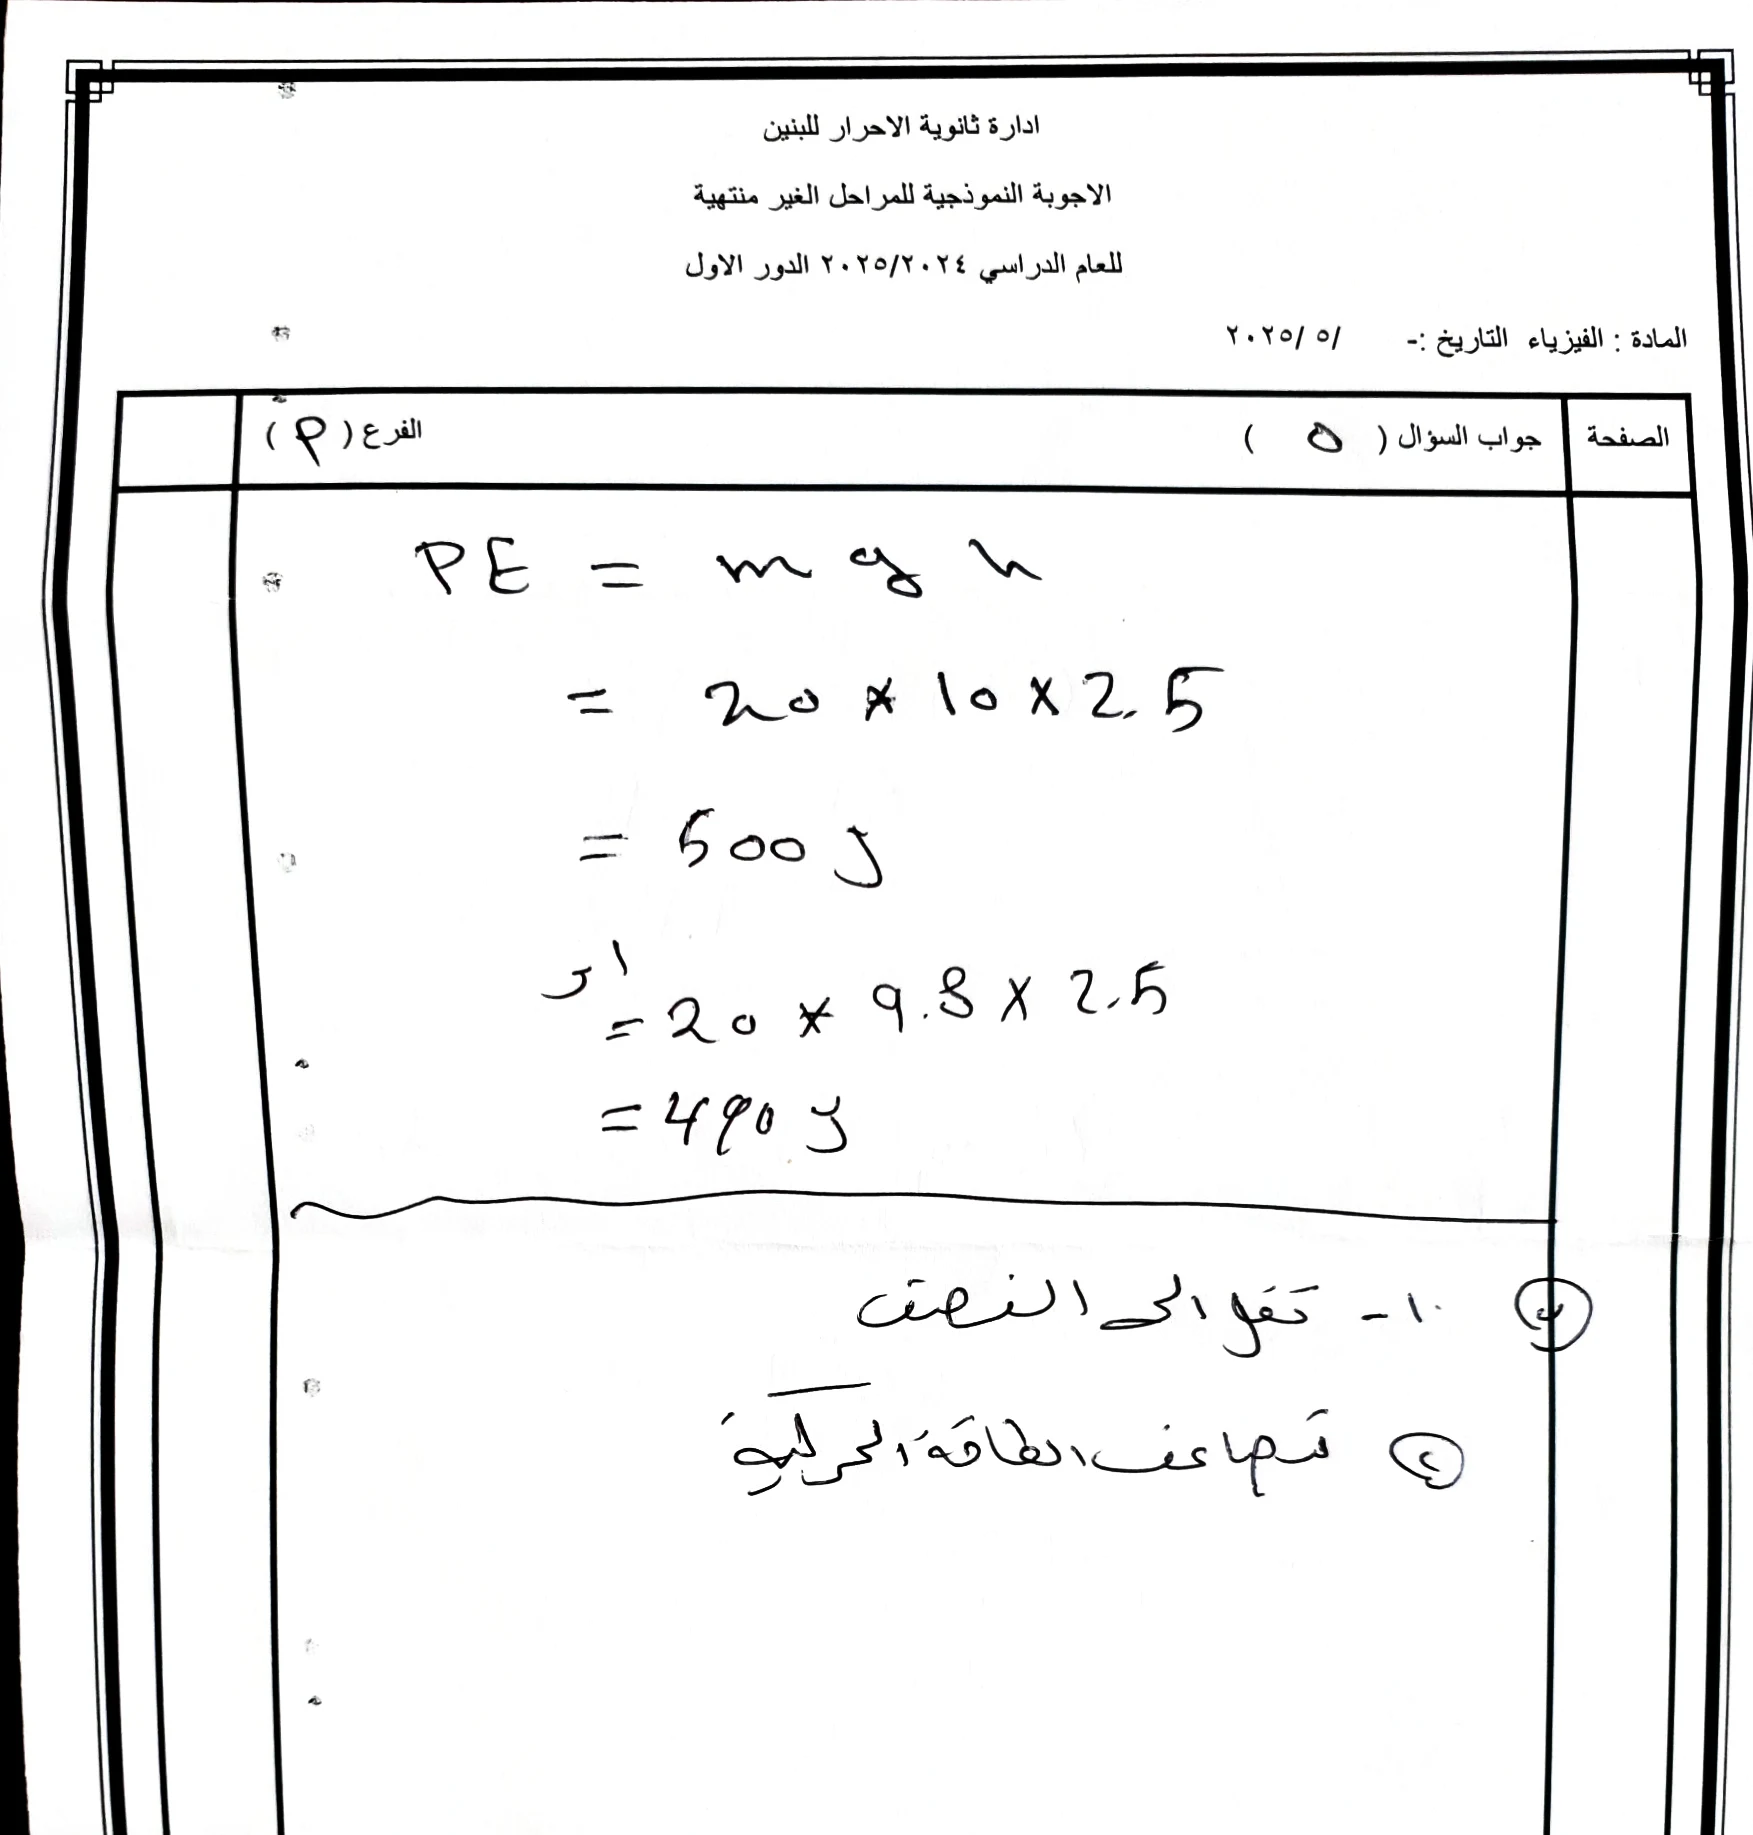 ادارة ثانوية الاحرار للبنين
الاجوبة النموذجية للمراحل الغير منتهية
للعام الدراسي ٢٠٢٥/٢٠٢٤ الدور الاول
المادة : الفيزياء التاريخ :- /٥ /٢٠٢٥
الصفحة جواب السؤال ( ٥ ) الفرع ( P )
PE = m g h
= 20 * 10 x 2.5
= 500 J
او
= 20 * 9.8 x 2.5
= 490 J
ب ١- تقل الى النصف
٢ تتضاعف الطاقة الحركية